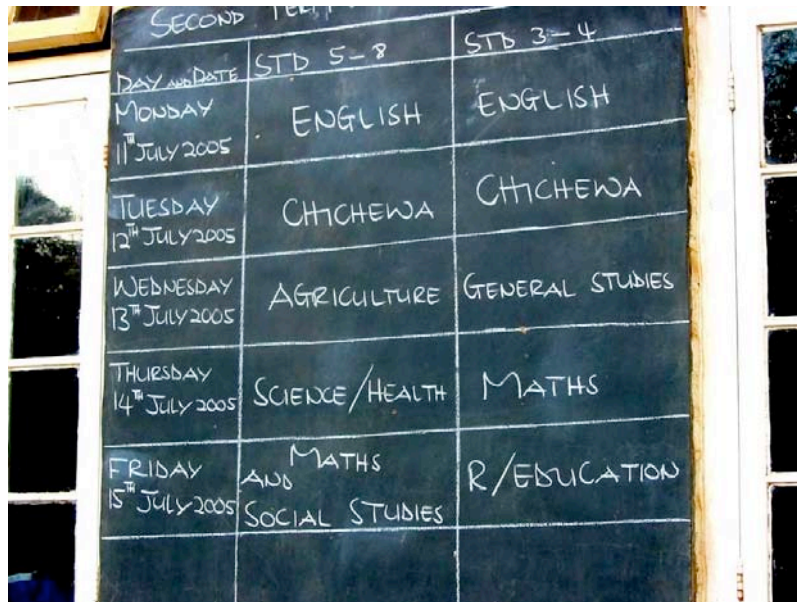 SECOND TERM
DAY AND DATE STD 5-8 STD 3-4
MONDAY
11TH JULY 2005 ENGLISH ENGLISH
TUESDAY
12TH JULY 2005 CHICHEWA CHICHEWA
WEDNESDAY
13TH JULY 2005 AGRICULTURE GENERAL STUDIES
THURSDAY
14TH JULY 2005 SCIENCE/HEALTH MATHS
FRIDAY
15TH JULY 2005 MATHS
AND
SOCIAL STUDIES R/EDUCATION